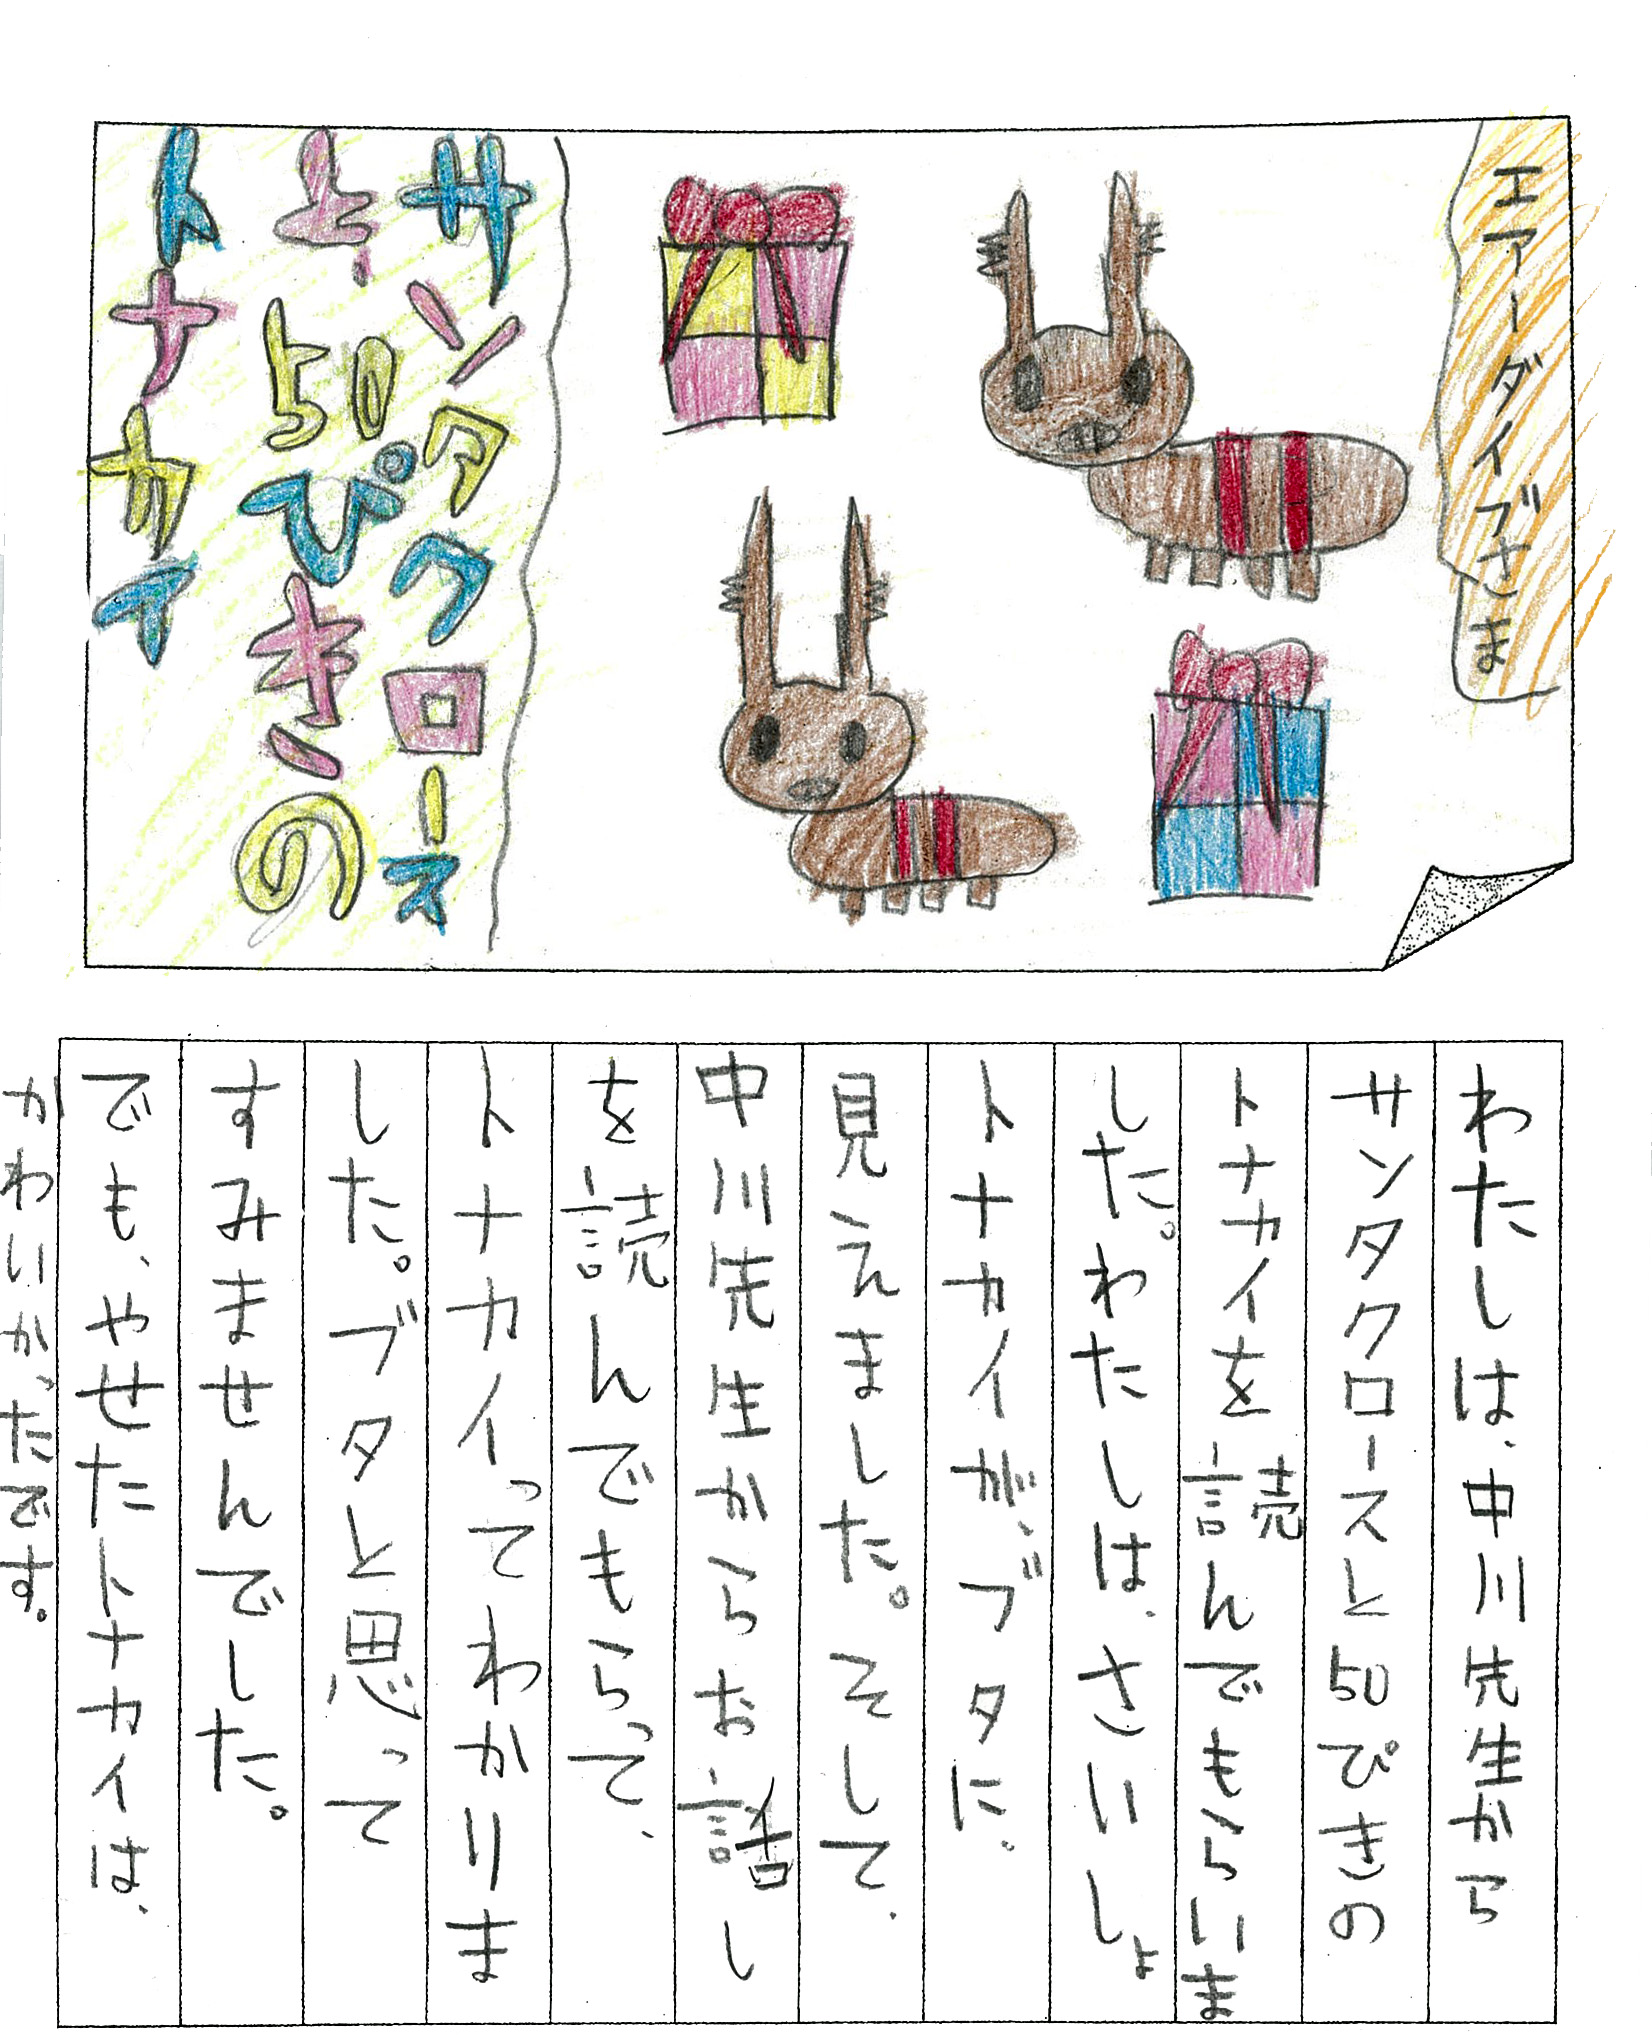 エアーダイブさま
サンタクロース
と、50ぴきの
トナカイ
わたしは、中川先生から
サンタクロースと50ぴきの
トナカイを読んでもらいま
した。わたしは、さいしょ
トナカイが、ブタに、
見えました。そして、
中川先生からお話し
を読んでもらって、
トナカイってわかりま
した。ブタと思って
すみませんでした。
でも、やせたトナカイは、
かわいかったです。